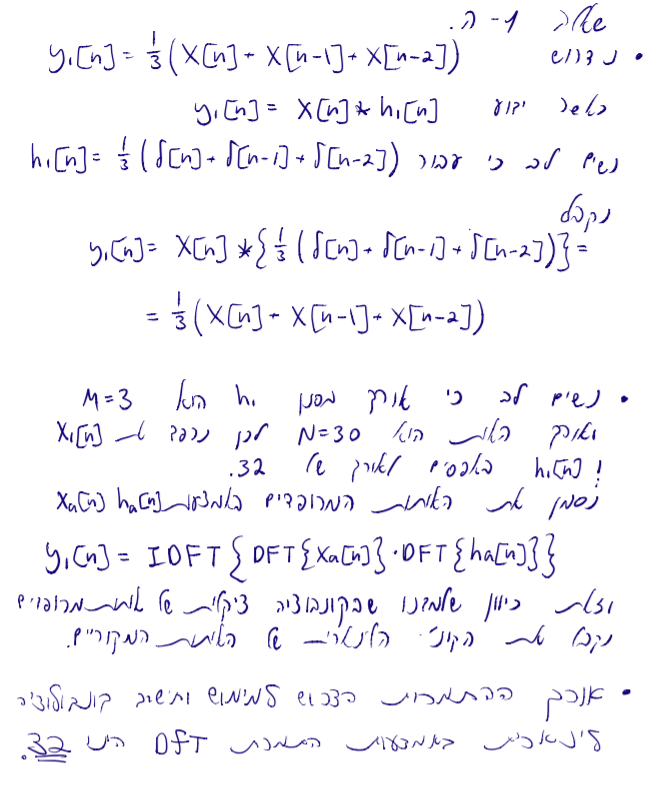 שאלה 1 - ה.
• נדרוש y₁[n] = 1/3 (x[n] + x[n-1] + x[n-2])
כאשר ידוע y₁[n] = x[n] * h₁[n]
נשים לב כי עבור h₁[n] = 1/3 (δ[n] + δ[n-1] + δ[n-2])
נקבל
y₁[n] = x[n] * {1/3 (δ[n] + δ[n-1] + δ[n-2])} =
= 1/3 (x[n] + x[n-1] + x[n-2])
• נשים לב כי אורך מסנן h₁ הוא M=3
ואורך האות הוא N=30 לכן נרפד את x₁[n]
ו h₁[n] באפסים לאורך של 32.
נסמן את האותות המרופדים באמצעות xₐ[n] hₐ[n]
y₁[n] = IDFT {DFT{xₐ[n]} · DFT{hₐ[n]}}
וזאת כיוון שלמדנו שבקונבולוציה ציקלית של אותות מרופדים
נקבל את הקונ' הלינארית של האותות המקוריים.
• אורך ההתמרות הדרוש למימוש וחישוב קונבולוציה
לינארית באמצעות התמרת DFT הינו 32.